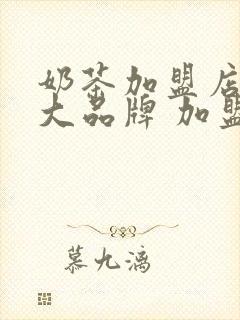 奶茶加盟店
大品牌 加盟
慕九漓